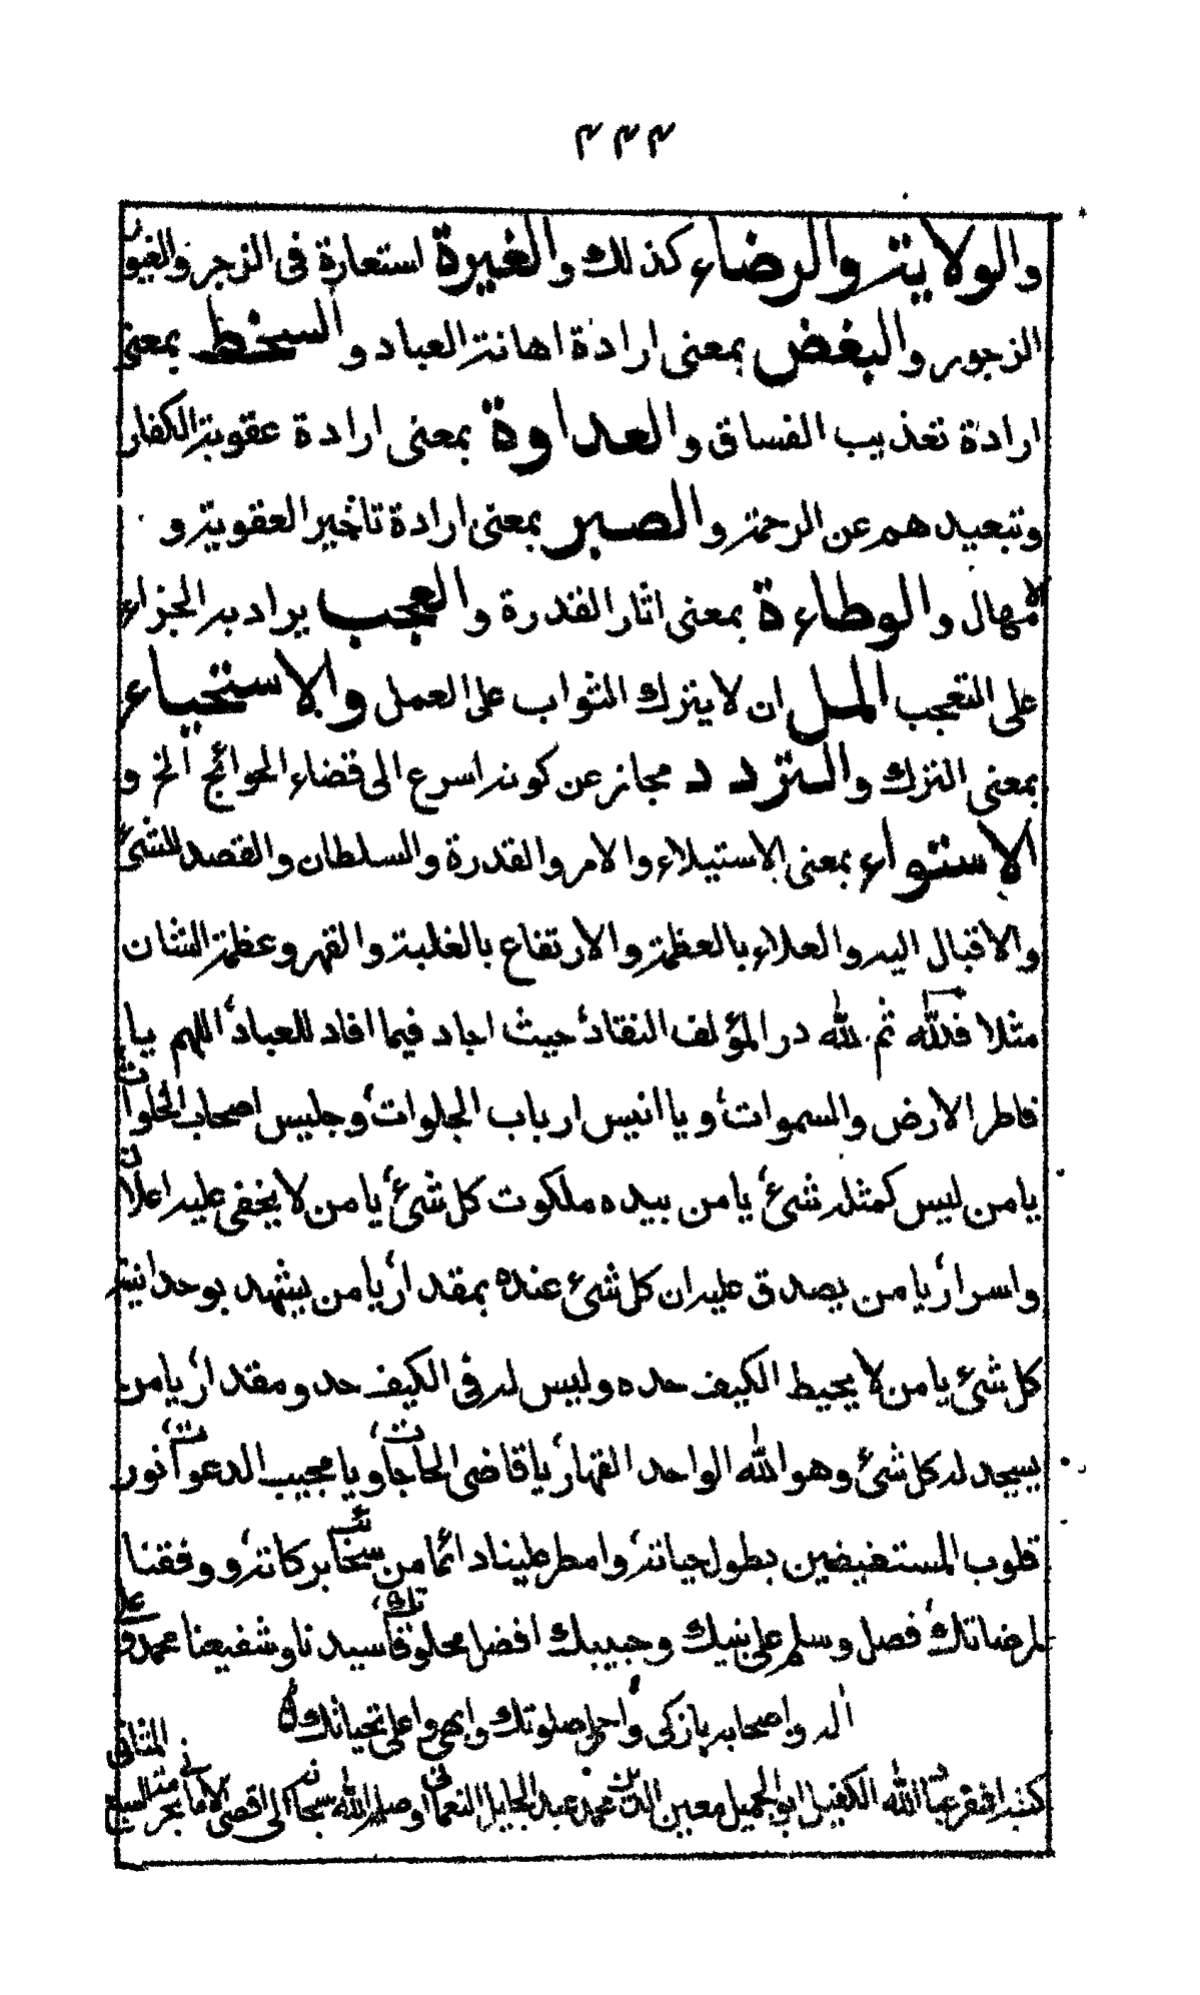 ۴۴۴
والولاية والرضاء كذلك والغيرة استعارة فى الزجر والغيور
الزجور والبغض بمعنى ارادة اهانة العباد والسخط بمعنى
ارادة تعذيب الفساق والعداوة بمعنى ارادة عقوبة الكفار
وتبعيد هم عن الرحمة والصبر بمعنى ارادة تاخير العقوبة و
الامهال والوطاءة بمعنى اثار القدرة والعجب يراد به الجزاء
على التعجب الملل ان لا يترك الثواب على العمل والاستحياء
بمعنى الترك والتردد مجاز عن كونه اسرع الى قضاء الحوائج الخ و
الاستواء بمعنى الاستيلاء والامر والقدرة والسلطان والقصد للشئ
والاقبال اليه والعلاء بالعظمة والارتفاع بالغلبة والقهر وعظمة الشان
مثلا فلله ثم لله در المؤلف النقاد حيث اجاد فيما افاد للعباد اللهم يا
فاطر الارض والسموات ويا انيس ارباب الجلوات وجليس اصحاب الخلوات
يا من ليس كمثله شئ يا من بيده ملكوت كل شئ يا من لا يخفى عليه اعلان
واسرار يا من يصدق عليه ان كل شئ عنده بمقدار يا من يشهد بوحدانيته
كل شئ يا من لا يحيط الكيف حده وليس له فى الكيف حد ومقدار يا من
يسجد له كل شئ وهو الله الواحد القهار يا قاضى الحاجات ويا مجيب الدعوات نور
قلوب المستفيضين بطول حياته وامطر علينا دائما من سحائب بركاته ووفقنا
لمرضاتك فصل وسلم على نبيك وحبيبك افضل مخلوقاتك سيدنا وشفيعنا محمد وعلى
اله واصحابه بازكى واجمل صلوتك وابهى واعلى تحياتك
كتبه افقر عباد الله الكفيل ابو الجميل معين الدين محمد عبد الجليل النعمانى اوصله الله سبحانه الى اقصى الامانى بحرمة السبع المثانى